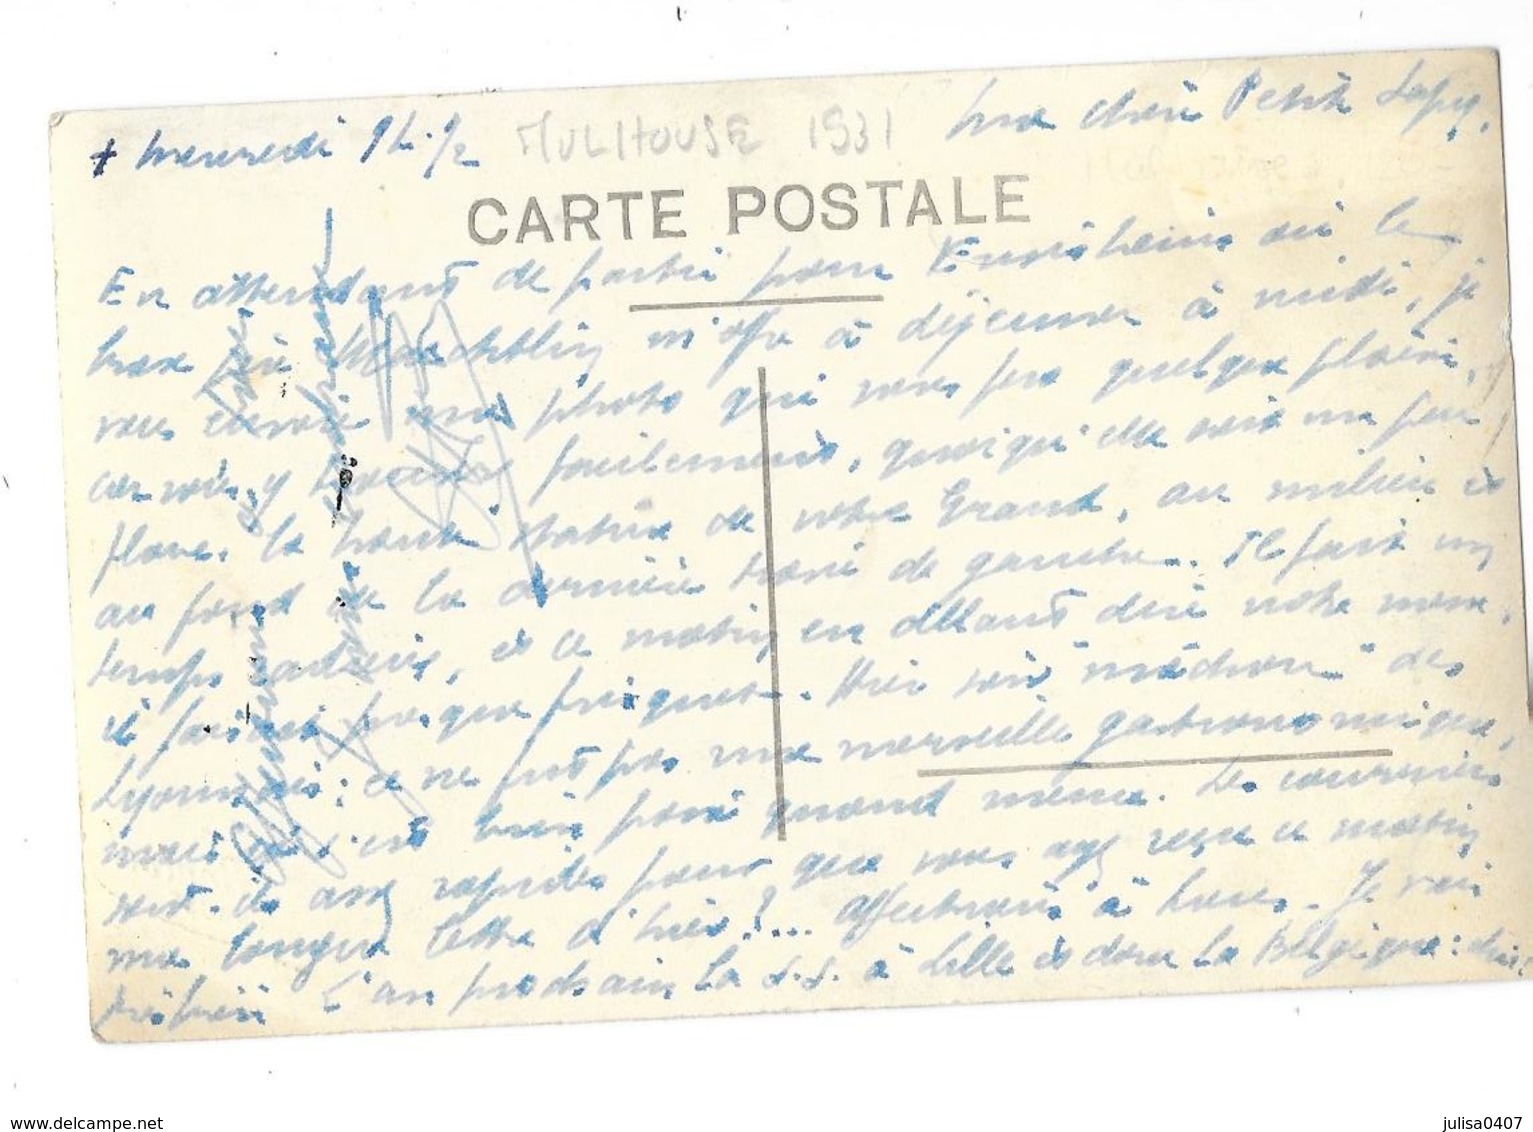 + Mercredi 9h.1/2 MULHOUSE 1931 Ma chère Petite
CARTE POSTALE
En attendant de partir pour Ensisheim où le
m'offre à déjeuner à midi, je
vous envoie une photo qui vous fera quelque plaisir,
facilement, quoiqu'elle soit un peu
floue. la haute stature de notre Grand, au milieu et
au fond de la dernière travée de gauche. Il fait un
temps radieux, et ce matin en allant dire notre messe,
il faisait presque frisquet. Hier soir "mâchon" des
Lyonnais: ce ne fut pas une merveille gastronomique,
mais on s'est bien passé quand même. Les courriers
sont-ils assez rapides pour que vous ayez reçu ce matin
ma longue lettre d'hier?... Affections à toutes. Je vais
prêcher l'an prochain la à Lille et dans la Belgique:
delcampe.net
julisa0407